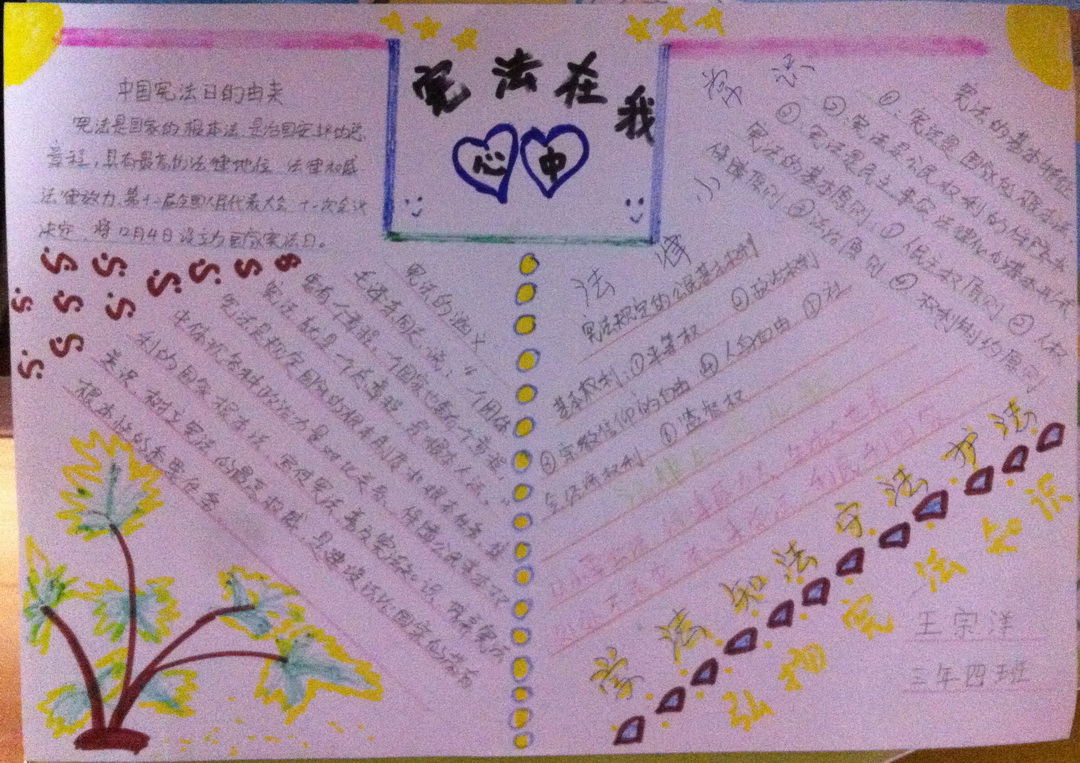 宪法在我
心中
中国宪法日的由来
宪法是国家的根本法,是治国安邦的总
章程,具有最高的法律地位、法律权威
法律效力。第十一届全国人民代表大会十一次会议
决定,将12月4日设立为国家宪法日。
宪法的涵义
毛泽东同志说:"一个团体
要有个章程,一个国家也要有个章程,
宪法就是一个总章程,是根本大法。"
宪法是规定国家的根本制度和根本任务,集
中体现各种政治力量对比关系,保障公民基本权
利的国家根本法。宣传宪法,普及宪法知识,培养宪法
意识,树立宪法的最高权威,是建设法治国家的
根本性的重要任务
学 法
宪法的基本特征
①、宪法是国家的根本法
②、宪法是公民权利的保障书
③、宪法是民主事实法律化的基本形式
宪法的基本原则:①人民主权原则 ②人权
保障原则 ③法治原则 ④权利制约原则
法律
宪法规定的公民基本权利
基本权利:①平等权 ②政治权利
③宗教信仰的自由 ④人身自由 ⑤社
会经济权利 ⑥监督权
学法知法守法护法
弘扬宪法知识
王宗洋
三年四班